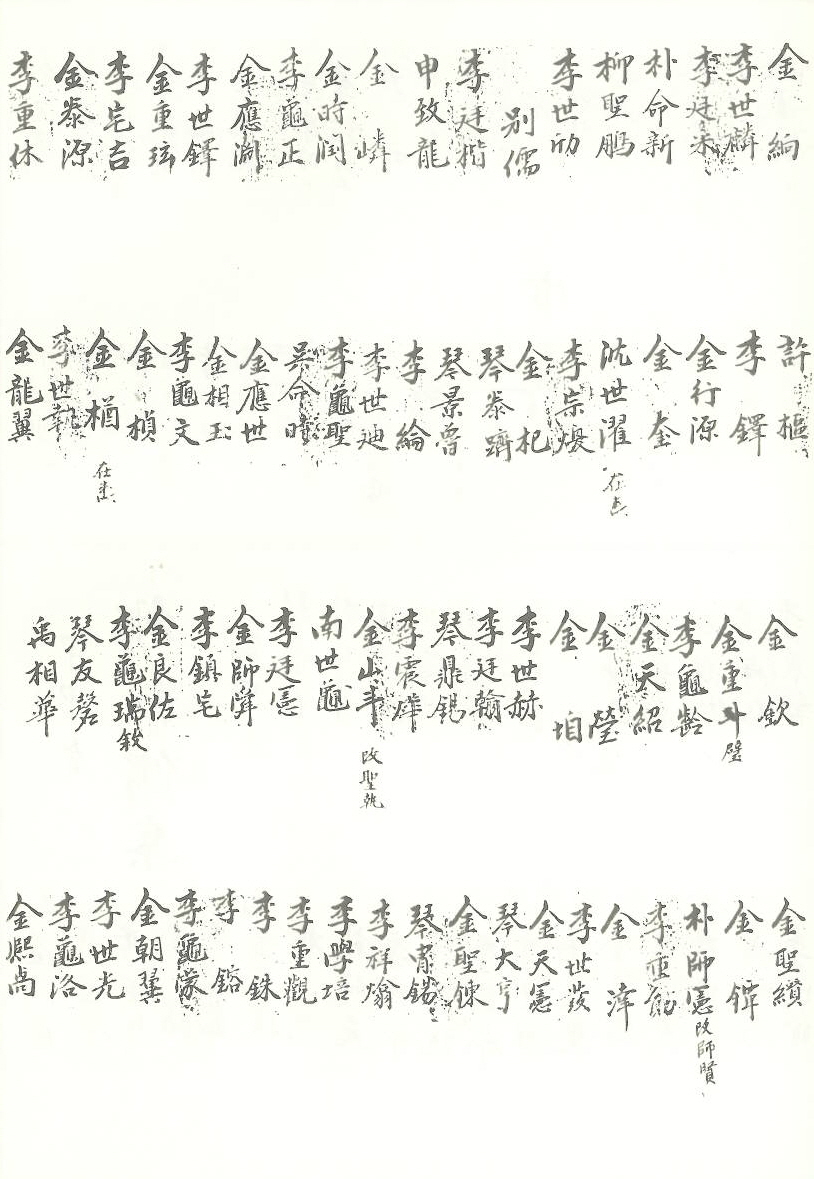 金絅
李世麟
李廷
朴命新
柳聖鵬
李世
別儒
李廷楷
申致龍
金嶙
金時潤
李龜正
金應淵
李世鐸
金重
李宅吉
金泰源
李重休
許樞
李鐸
金行源
金奎
沈世濯
在
李宗煥
金杞
琴泰躋
琴景曾
李綸
李世迪
李龜聖
吳命時
金應世
金相玉
李龜文
金楨
金楢
在
李世
金龍翼
金欽
金重斗 璧
李龜齡
金天紹
金瑩
金垍
李世赫
李廷翰
琴鼎錫
李震燁
金山斗
改聖
南世龜
李廷憲
金師舜
李鎮宅
金良佐
李龜瑞 敘
琴友磬
禹相華
金聖纘
金鐸
朴師憲 改師賢
李重
金滓
李世茂
金天憲
琴大亨
金聖鍊
琴錫
李祥熻
李學培
李重觀
李銖
李鎔
李龜濛
金朝翼
李世光
李龜洛
金熙卨